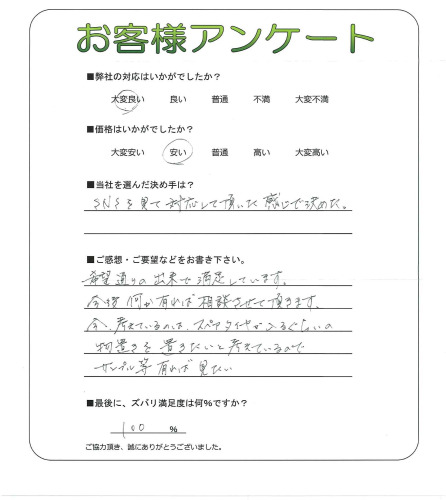 お客様アンケート
■弊社の対応はいかがでしたか？
大変良い 良い 普通 不満 大変不満
■価格はいかがでしたか？
大変安い 安い 普通 高い 大変高い
■当社を選んだ決め手は？
SNSを見て対応して頂いた感じで決めた。
■ご感想・ご要望などをお書き下さい。
希望通りの出来で満足しています。
今後何か有れば相談させて頂きます。
今、考えているのは、スペアタイヤが入るぐらいの
物置きを置きたいと考えているので
サンプル等有れば見たい
■最後に、ズバリ満足度は何％ですか？
100 %
ご協力頂き、誠にありがとうございました。